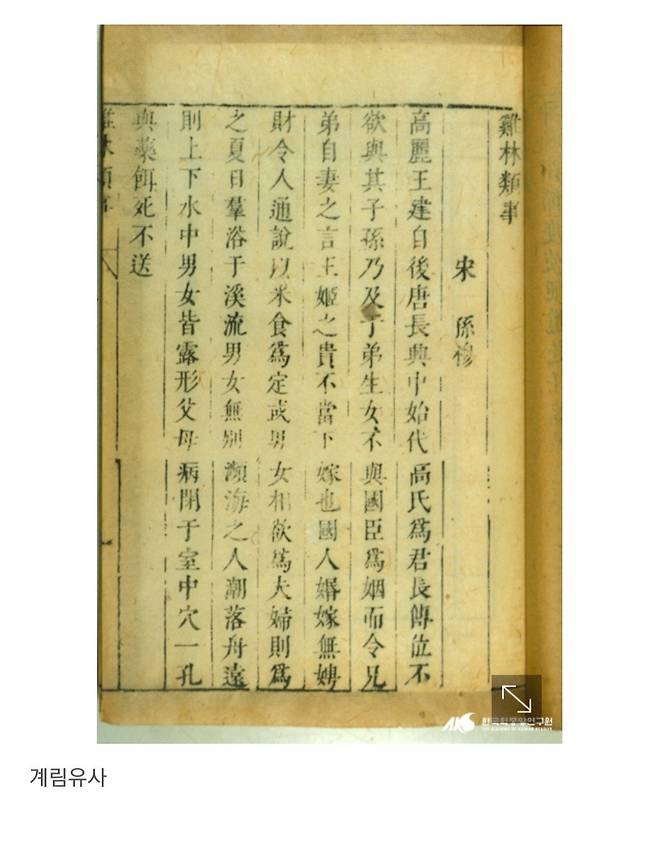 雞林類事
宋 孫穆
高麗王建自後唐長興中始代高氏爲君長傳位不
欲與其子孫乃及于弟生女不與國臣爲姻而令兄
弟自妻之言王姬之貴不當下嫁也國人婚嫁無娉
財令人通說以米食爲定或男女相欲爲夫婦則爲
之夏日羣浴于溪流男女無別瀕海之人潮落舟遠
則上下水中男女皆露形父母病閉于室中穴一孔
與藥餌死不送
雞林類事
一
AKS 한국학중앙연구원
계림유사